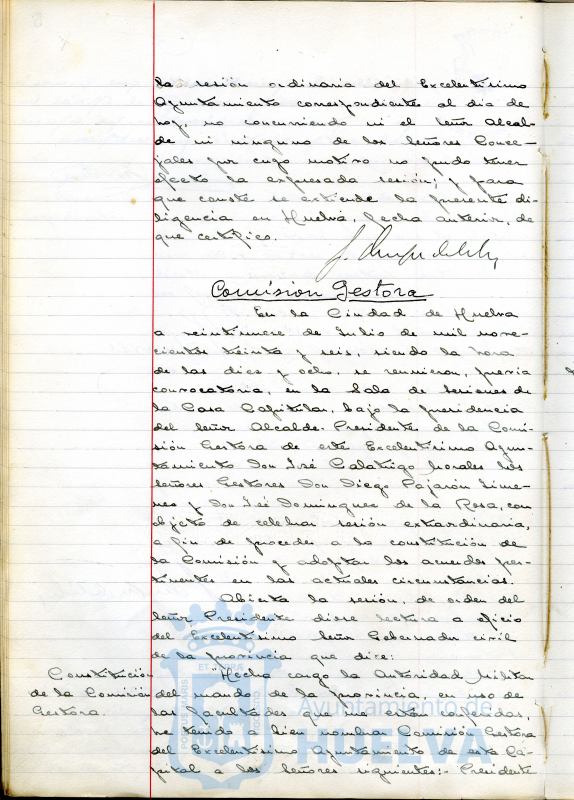 la sesión ordinaria del Excelentísimo
Ayuntamiento correspondientes al dia de
hoy, no concurriendo ni el señor Alcal-
de ni ninguno de los señores Conce-
jales por cuyo motivo no pudo tener
efecto la expresada sesión; y para
que conste se extiende la presente di-
ligencia en Huelva, fecha anterior, de
que certifico.
Comisión Gestora
En la Ciudad de Huelva
a veintinueve de Julio de mil nove-
cientos treinta y seis, siendo la hora
de las diez y ocho, se reunieron, previa
convocatoria, en la Sala de sesiones de
la Casa Capitular, bajo la presidencia
del señor Alcalde-Presidente de la Comi-
sión Gestora de este Excelentísimo Ayun-
tamiento Don José Calatrigo Morales los
señores Gestores Don Diego Pajarón Jime-
nez y Don José Dominguez de la Rosa, con
objeto de celebrar sesión extraordinaria,
a fin de proceder a la constitución de
la Comisión y adoptar los acuerdos per-
tinentes en las actuales circunstancias.
Abierta la sesión, de orden del
señor Presidente diose lectura a oficio
del Excelentísimo señor Gobernador civil
de la provincia que dice:
Constitución
de la Comisión
Gestora.
"Hecha cargo la Autoridad Militar
del mando de la provincia, en uso de
las facultades que me están conferidas,
he tenido a bien nombrar Comisión Gestora
del Excelentísimo Ayuntamiento de esta Ca-
pital a los señores siguientes:- Presidente
Ayuntamiento de
HUELVA